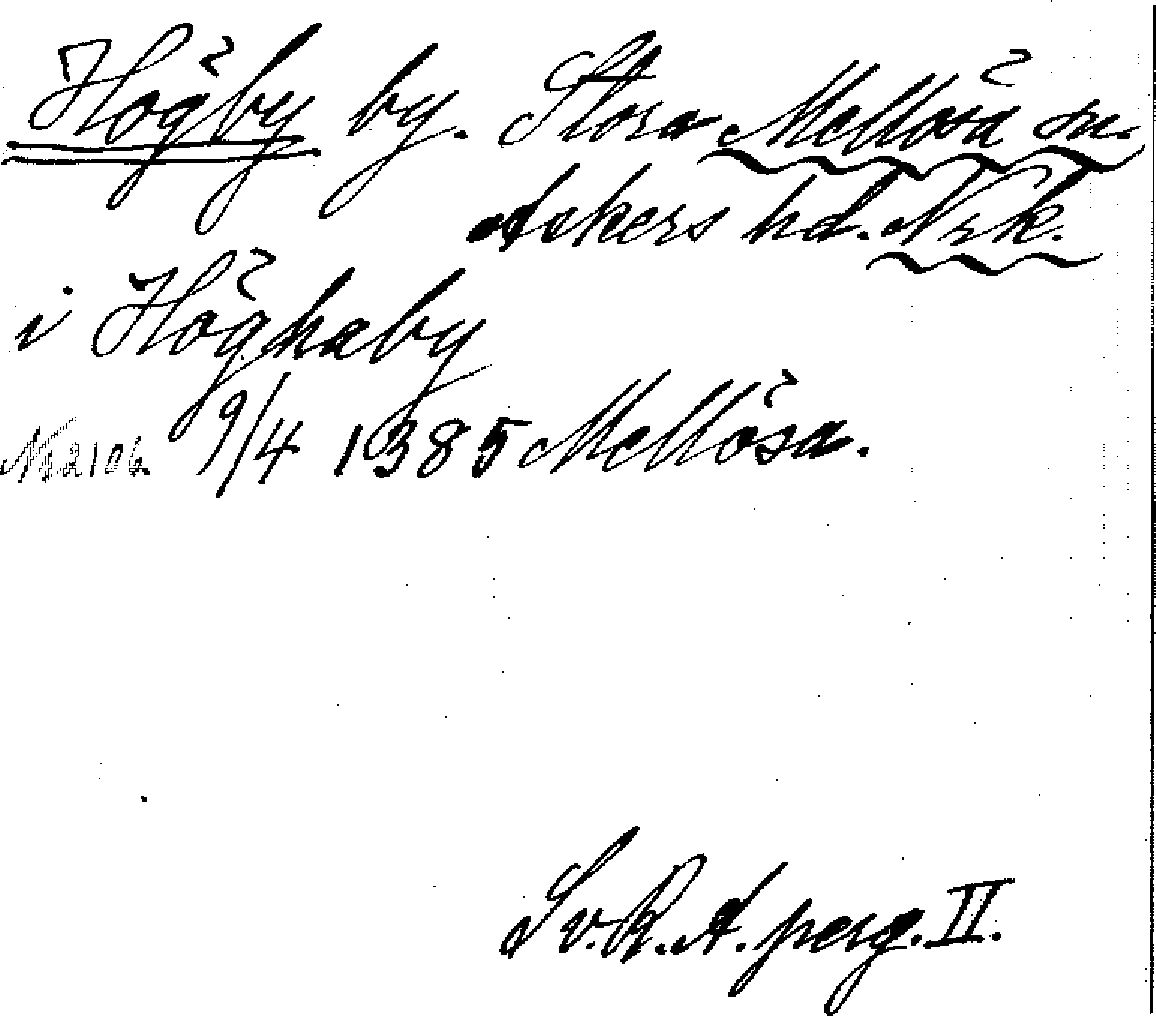 Högby by. Stora Mellösa sn.
Askers hd. Nrk.
i Höghaby
Nr 2106. 9/4 1385 Mellösa.
Sv. R. A. perg. II.